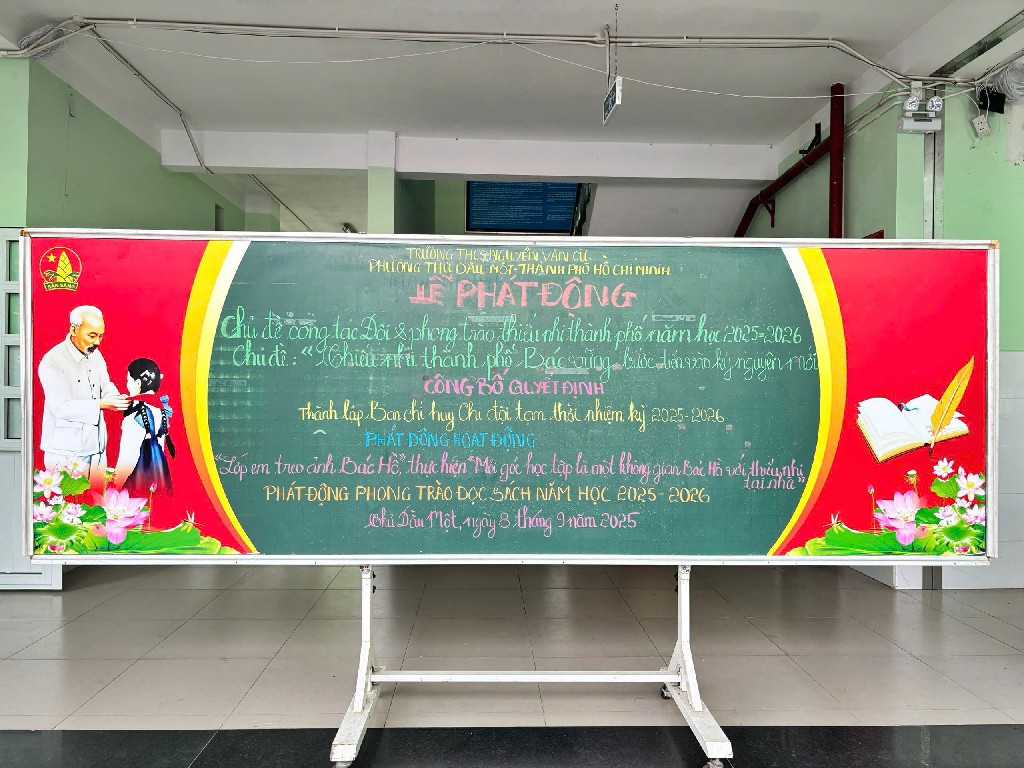 SẴN SÀNG
TRƯỜNG THCS NGUYỄN VĂN CỪ
PHƯỜNG THỦ DẦU MỘT-THÀNH PHỐ HỒ CHÍ MINH
LỄ PHÁT ĐỘNG
Chủ đề công tác Đội & phong trào thiếu nhi thành phố năm học 2025-2026
Chủ đề: "Thiếu nhi thành phố Bác vững bước tiến vào kỷ nguyên mới
CÔNG BỐ QUYẾT ĐỊNH
Thành lập Ban chỉ huy Chi đội tạm thời nhiệm kỳ 2025-2026
PHÁT ĐỘNG HOẠT ĐỘNG
"Lớp em treo ảnh Bác Hồ," thực hiện "Mỗi góc học tập là một không gian Bác Hồ với thiếu nhi
tại nhà"
PHÁT ĐỘNG PHONG TRÀO ĐỌC SÁCH NĂM HỌC 2025-2026
Thủ Dầu Một, ngày 8 tháng 9 năm 2025